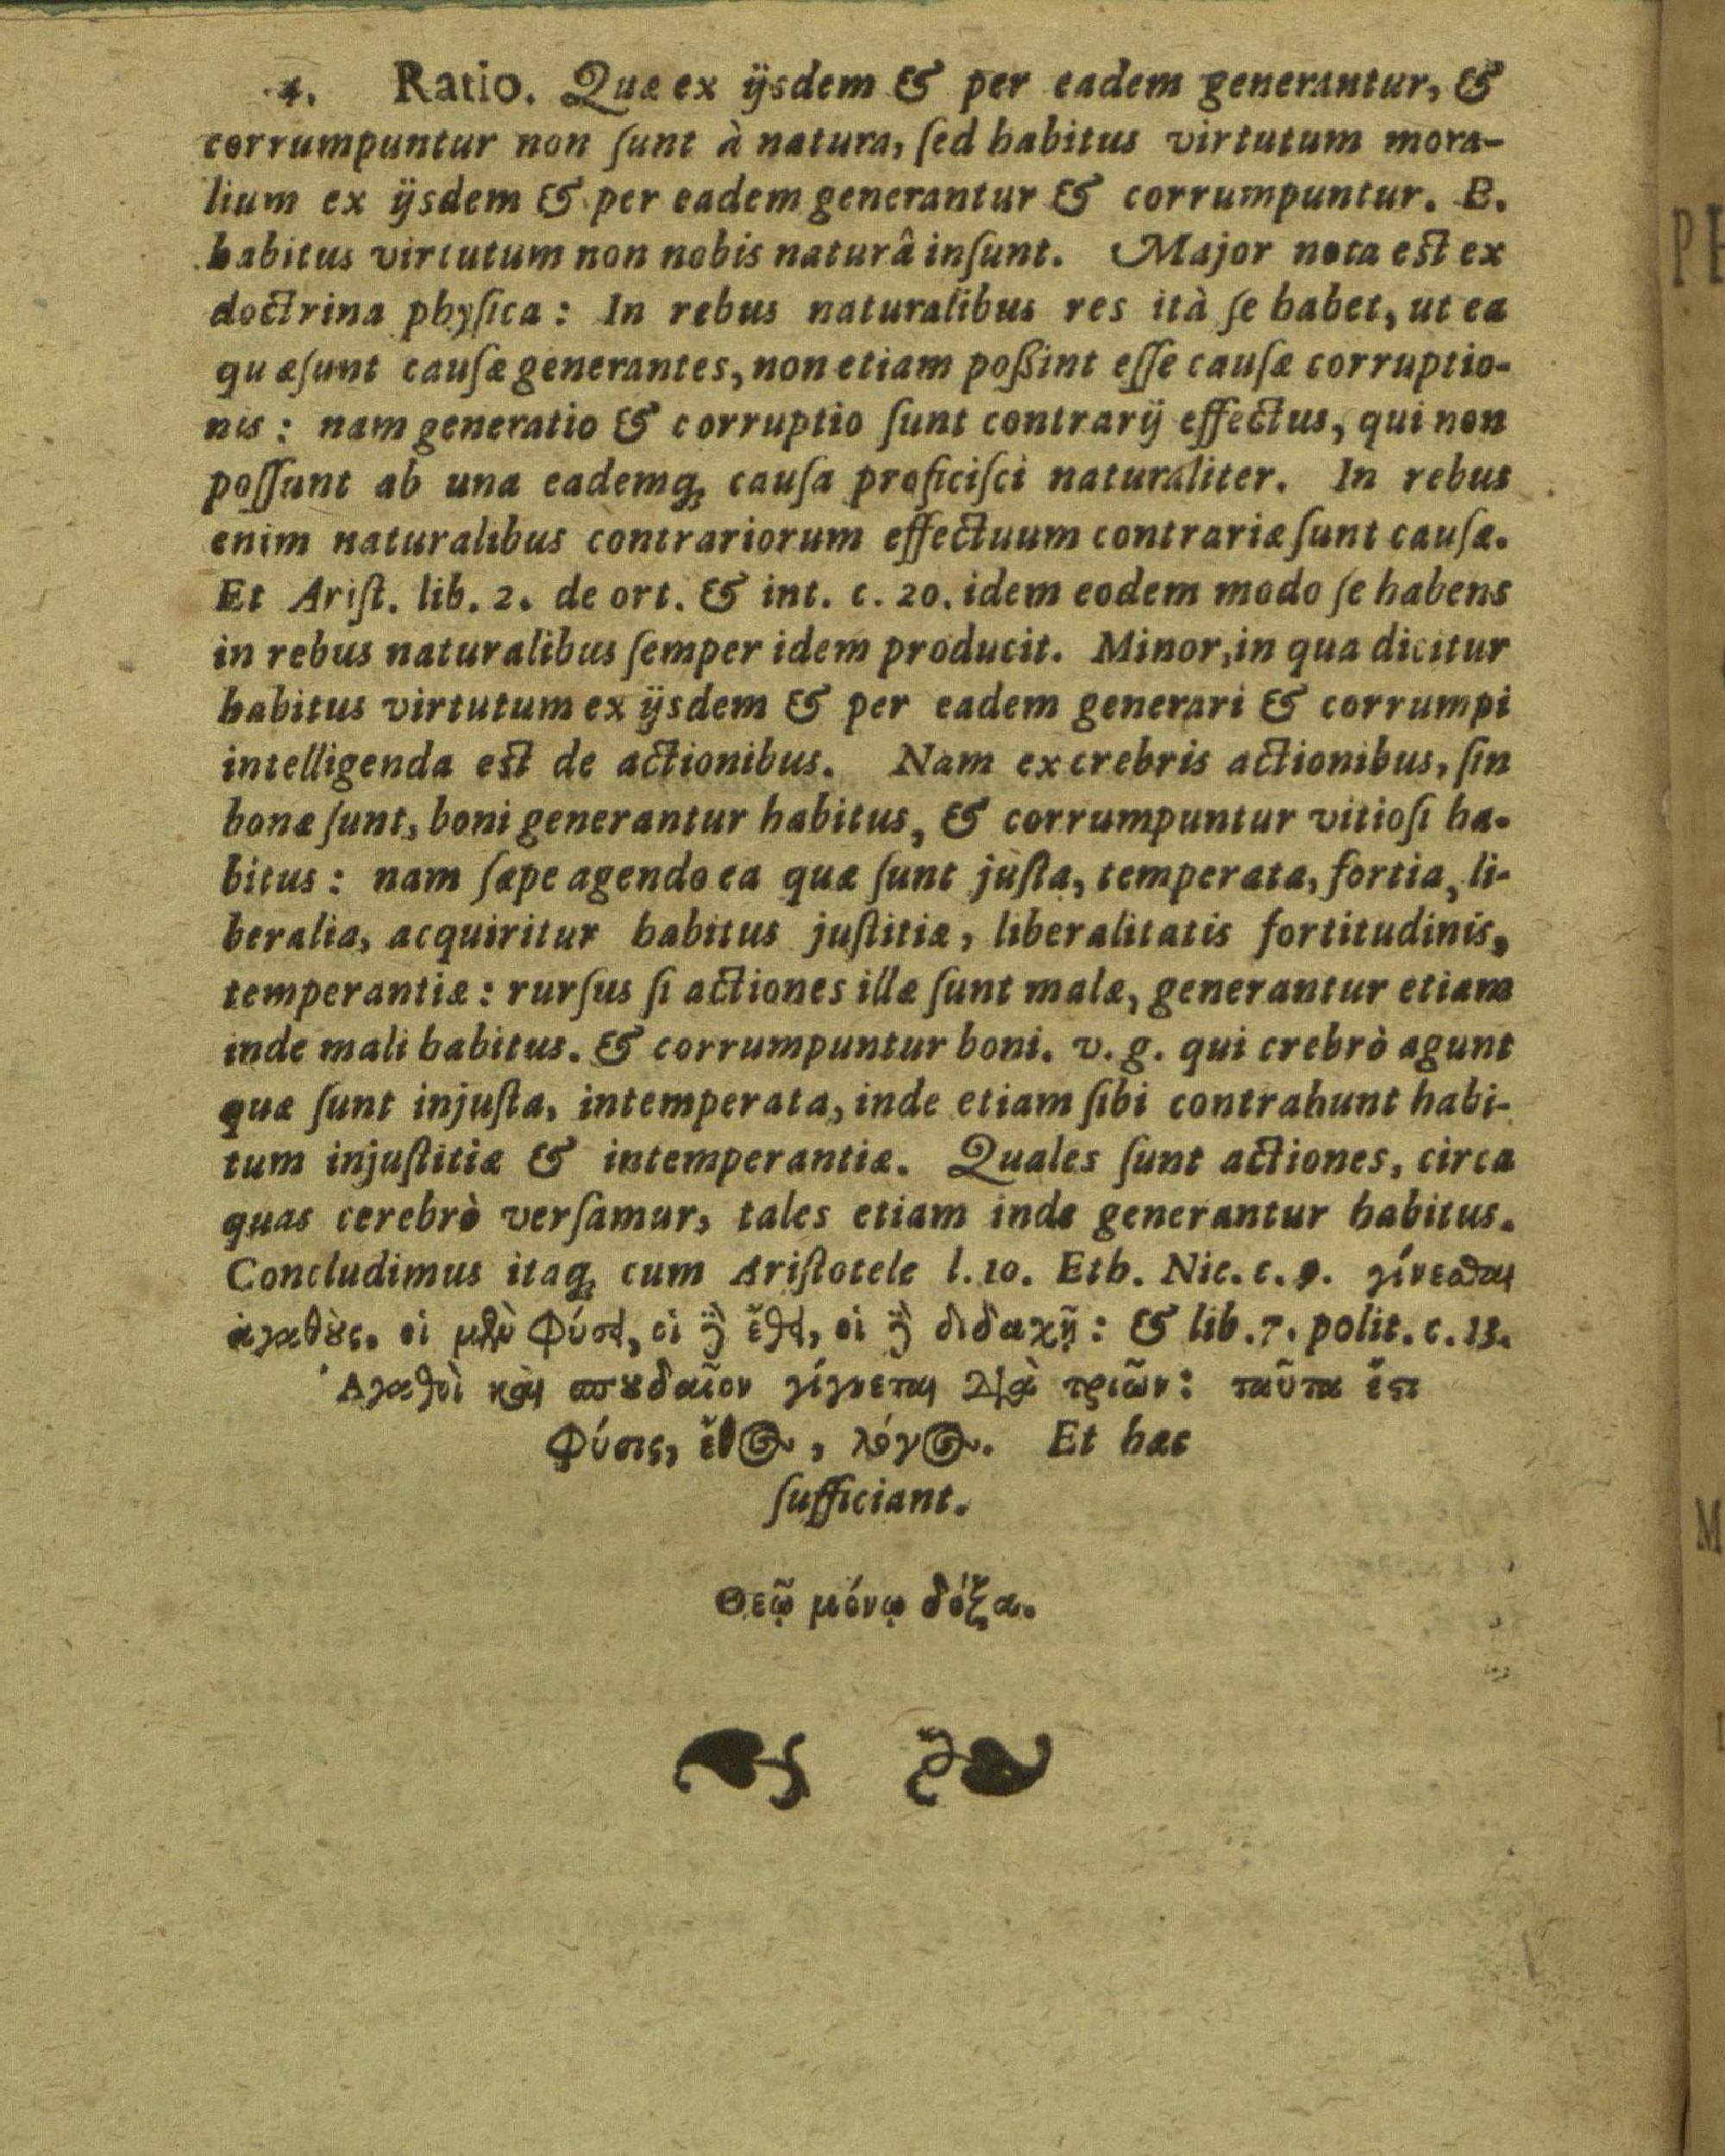 4. Ratio. Quæ ex ijsdem & per eadem generantur, &
corrumpuntur non ſunt à natura, ſed habitus virtutum mora-
lium ex ijsdem & per eadem generantur & corrumpuntur. E.
habitus virtutum non nobis naturâ inſunt. Major nota est ex
doctrina phyſica: In rebus naturalibus res ità ſe habet, ut ea
quæſunt cauſæ generantes, non etiam poßint eſſe cauſæ corruptio-
nis: nam generatio & corruptio ſunt contrarij effectus, qui non
poſſunt ab una eademq; cauſa proficiſci naturaliter. In rebus
enim naturalibus contrariorum effectuum contrariæ ſunt cauſæ.
Et Ariſt. lib. 2. de ort. & int. c. 20. idem eodem modo ſe habens
in rebus naturalibus ſemper idem producit. Minor, in qua dicitur
habitus virtutum ex ijsdem & per eadem generari & corrumpi
intelligenda est de actionibus. Nam ex crebris actionibus, ſin
bonæ ſunt, boni generantur habitus, & corrumpuntur vitioſi ha-
bitus: nam ſæpe agendo ea quæ ſunt juſta, temperata, fortia, li-
beralia, acquiritur habitus juſtitiæ, liberalitatis fortitudinis,
temperantiæ: rurſus ſi actiones illæ ſunt malæ, generantur etiam
inde mali habitus. & corrumpuntur boni. v. g. qui crebrò agunt
quæ ſunt injuſta, intemperata, inde etiam ſibi contrahunt habi-
tum injuſtitiæ & intemperantiæ. Quales ſunt actiones, circa
quas cerebrò verſamur, tales etiam inde generantur habitus.
Concludimus itaq; cum Ariſtotele l. 10. Eth. Nic. c. 9. γίνεσθαι
ἀγαθȣ̀ς. οἱ μὲν φύσει, οἱ δὲ ἔθει, οἱ δὲ διδαχῇ: & lib. 7. polit. c. 13.
Ἀγαθοὶ καὶ σπȣδαῖον γίγνεται διὰ τριῶν: ταῦτα ἔστι
φύσις, ἔθος, λόγος. Et hæc
ſufficiant.
Θεῷ μόνῳ δόξα.